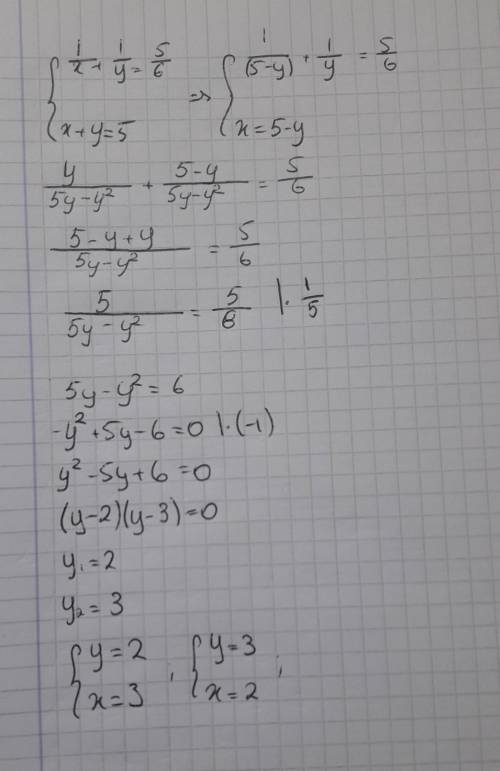 { 1/x + 1/y = 5/6 => { 1/(5-y) + 1/y = 5/6
x+y=5 x=5-y
y/(5y-y²) + (5-y)/(5y-y²) = 5/6
(5-y+y)/(5y-y²) = 5/6
5/(5y-y²) = 5/6 |· 1/5
5y-y²=6
-y²+5y-6=0 |·(-1)
y²-5y+6=0
(y-2)(y-3)=0
y₁=2
y₂=3
{ y=2 ; { y=3 ;
x=3 x=2